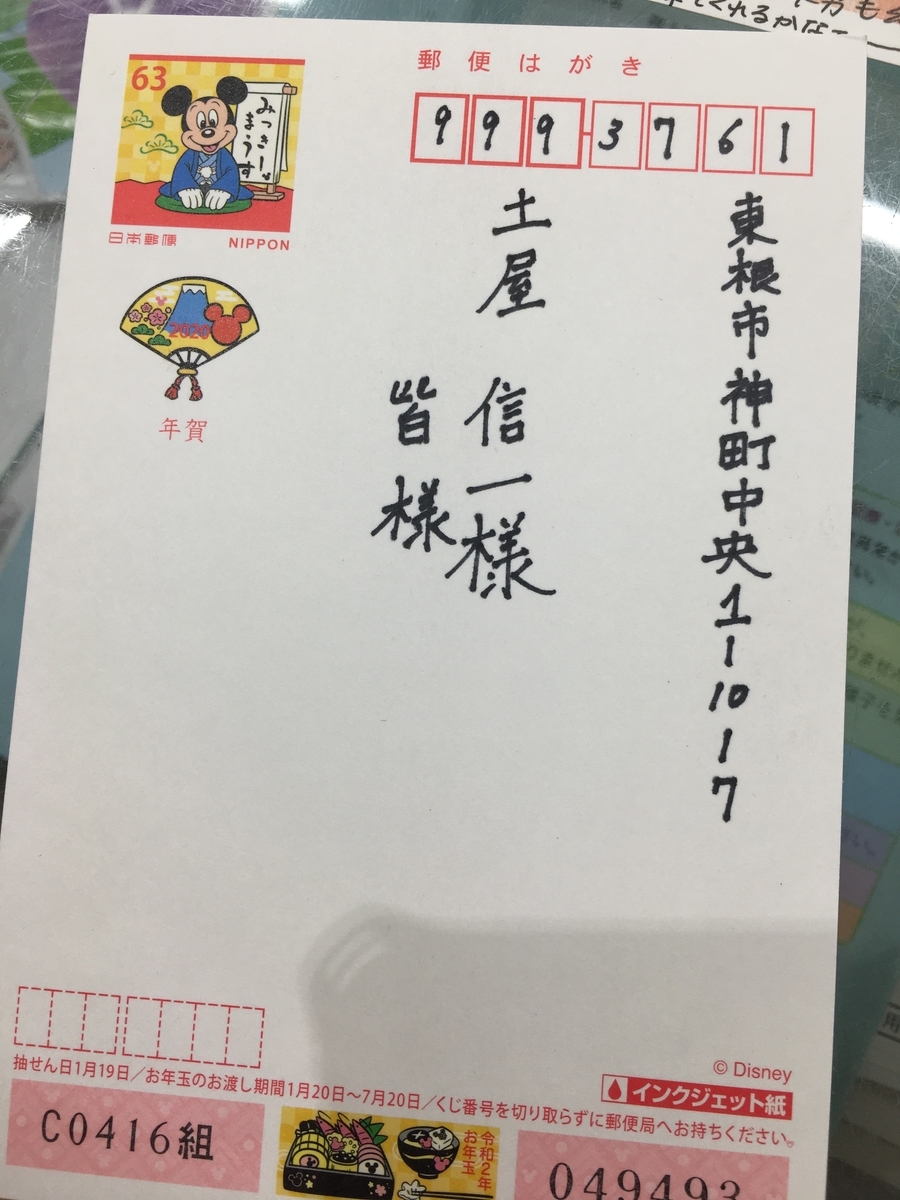 63
みっきー
まうす
日本郵便 NIPPON
2020
年賀
郵便はがき
999-3761
東根市神町中央1-10-7
土屋 信一様
皆様
© Disney
インクジェット紙
抽せん日1月19日/お年玉のお渡し期間1月20日~7月20日/くじ番号を切り取らずに郵便局へお持ちください。
C0416組
令和2年
お年玉
049493